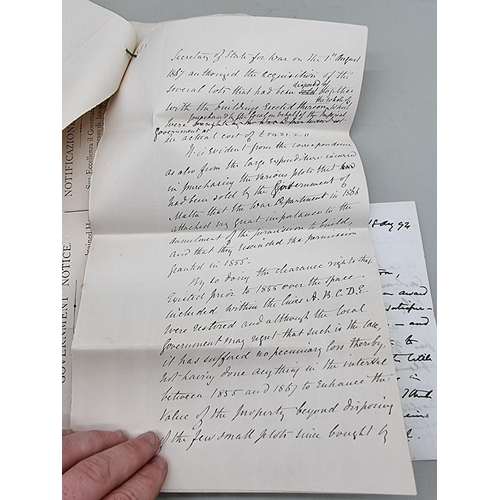 Secretary of State for War on the 1st August
1867 authorized the acquisition of the
several lots that had been sold together
disposed of
with the buildings erected thereon
the whole of
were bought by the War Department
Government at
an actual cost of £
It is evident from the correspondence
as also from the large expenditure incurred
in purchasing the various plots that had
been sold by the Government of
Malta that the War Department in 1866
attached very great importance to the
annulment of the permission to build,
and that they rescinded the permission
granted in 1855.
By so doing the clearance rights that
existed prior to 1855 over the space
included within the lines A.B.C.D.E.
were restored and although the local
Government may regret that such is the case
it has suffered no pecuniary loss thereby,
not having done anything in the interval
between 1855 and 1867 to enhance the
value of the property beyond disposing
of the few small plots since bought by
NOTIFICAZIONE
Sua Eccellenza il Governa
GOVERNMENT NOTICE.
18 Aug 92
award
and
to
in